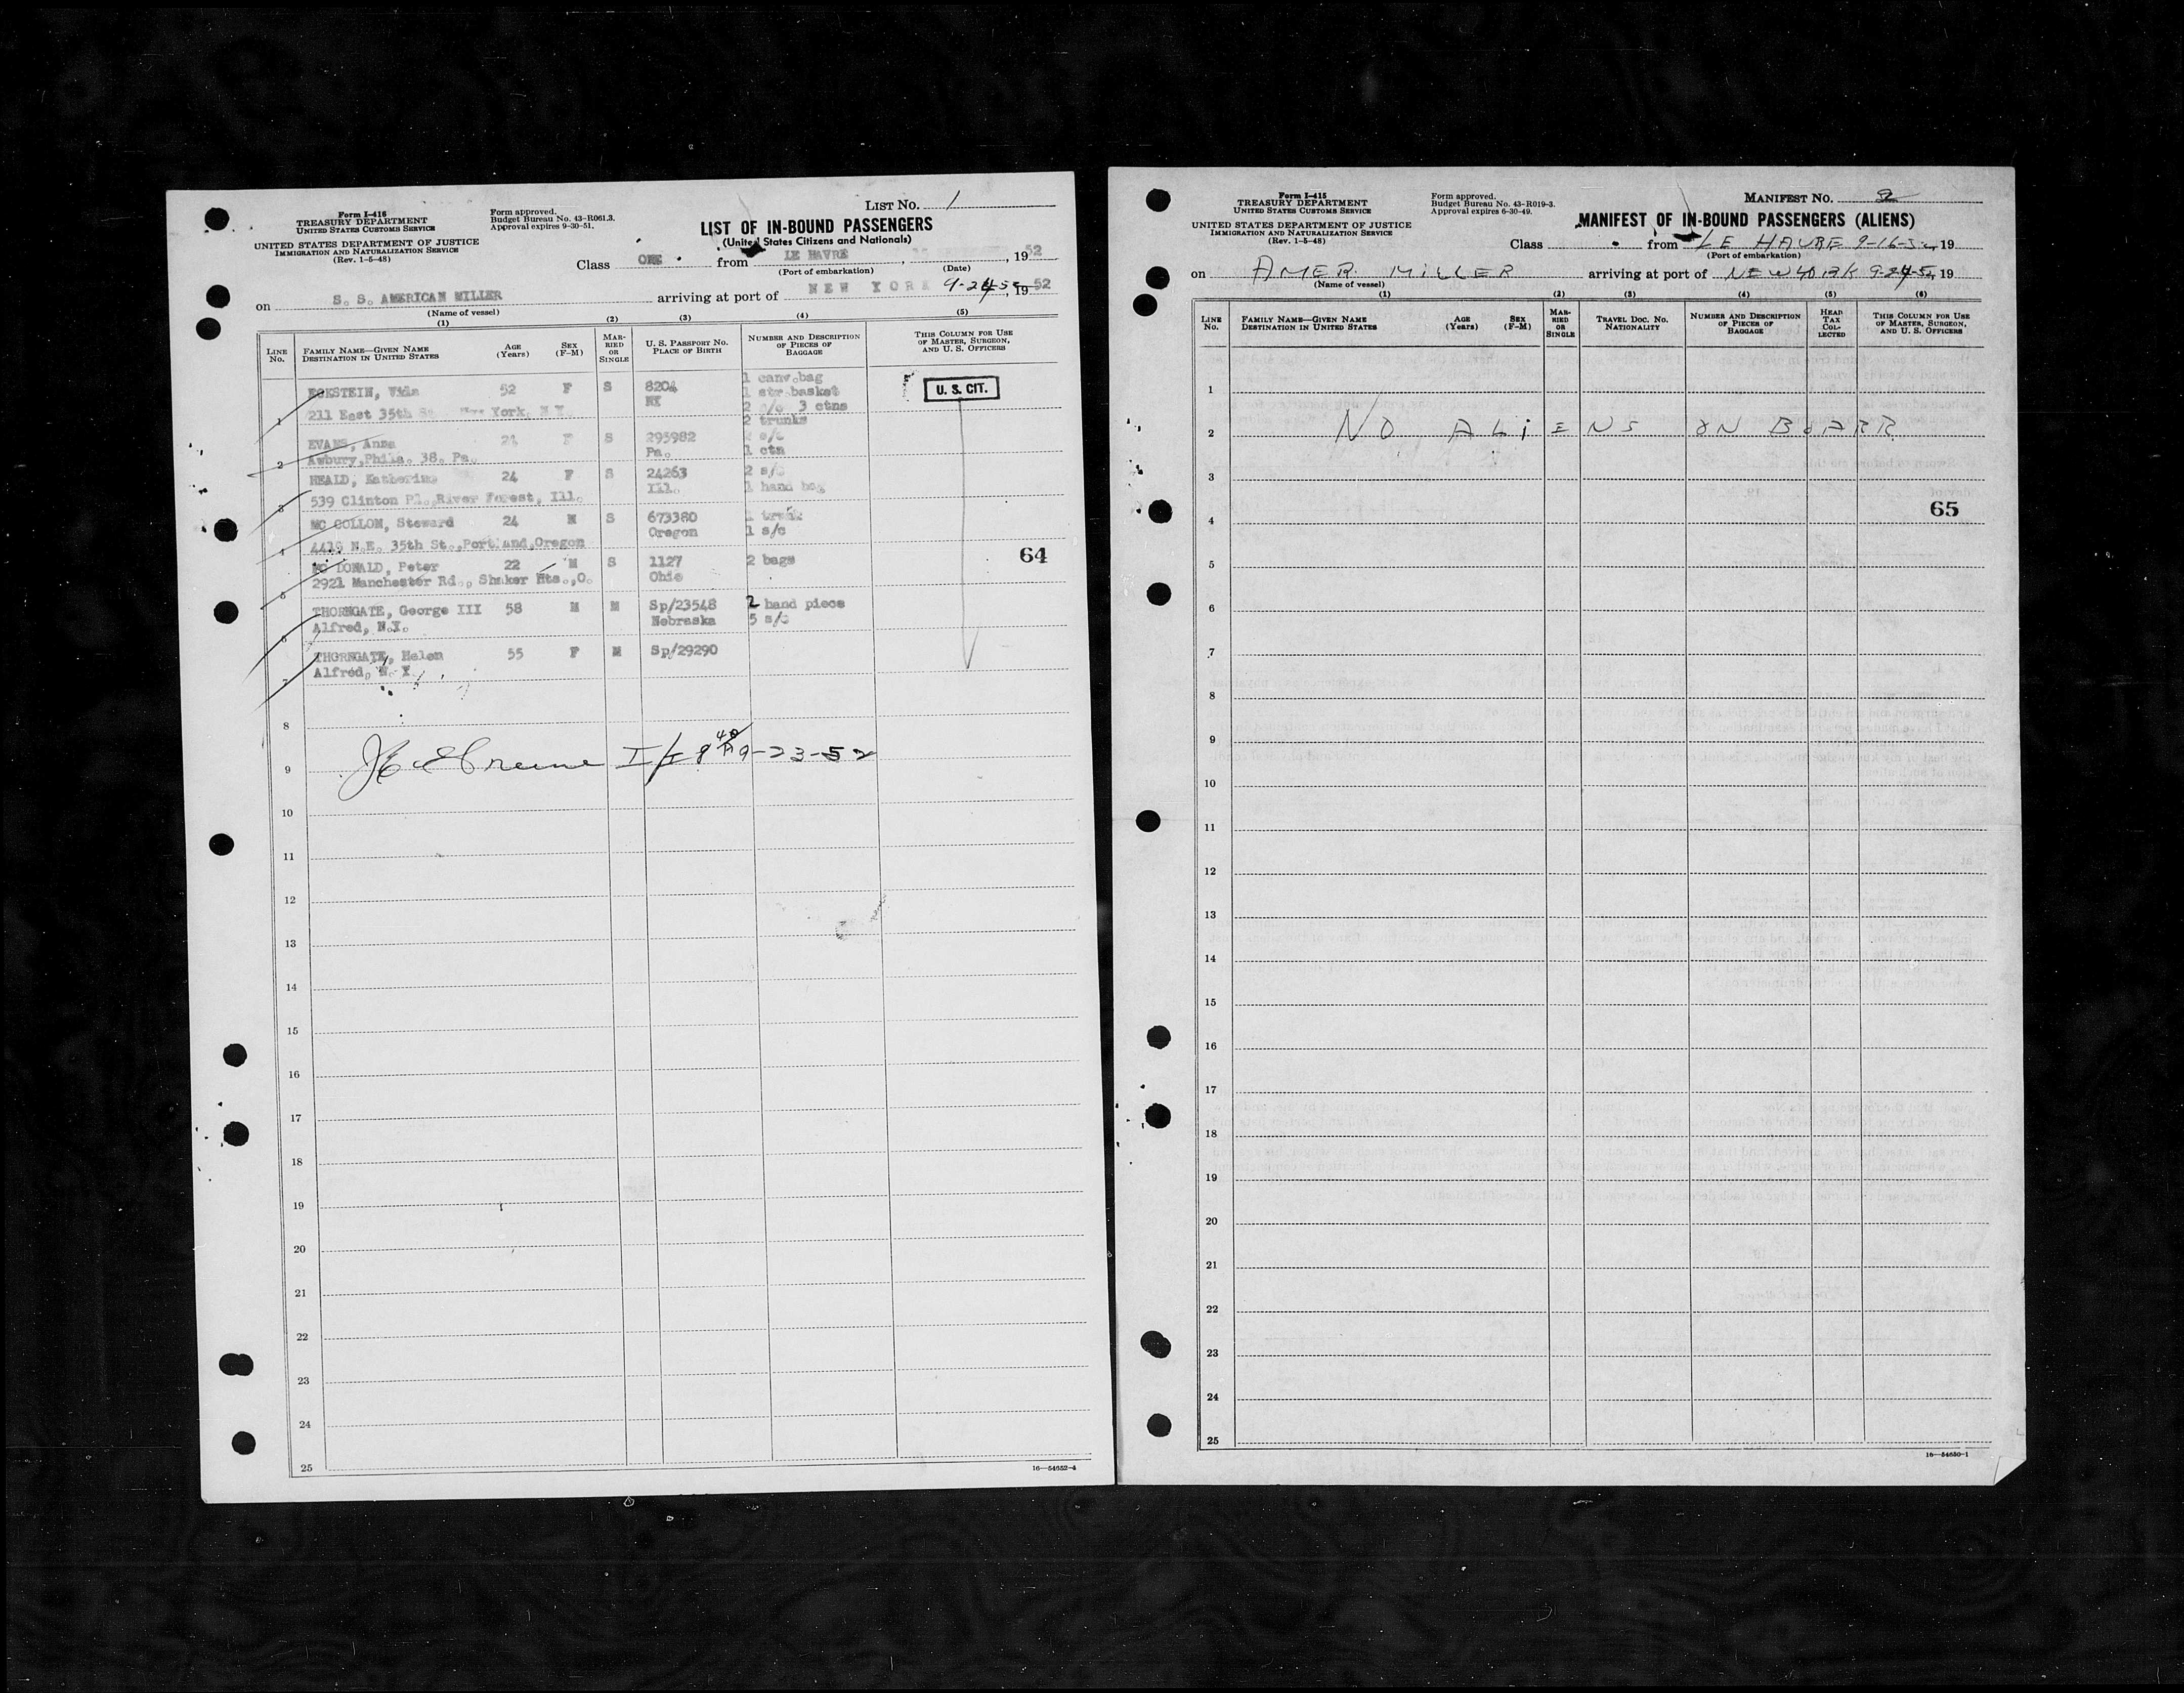 Form I-416
TREASURY DEPARTMENT
UNITED STATES CUSTOMS SERVICE
UNITED STATES DEPARTMENT OF JUSTICE
IMMIGRATION AND NATURALIZATION SERVICE
(Rev. 1-5-48)
Form approved.
Budget Bureau No. 43-R061.3.
Approval expires 9-30-51.
LIST NO. 1
LIST OF IN-BOUND PASSENGERS
(United States Citizens and Nationals)
Class ONE from LE HAVRE, 1952
(Port of embarkation) (Date)
on S. S. AMERICAN MILLER arriving at port of NEW YORK 9-24-52, 1952
(Name of vessel)
(1) (2) (3) (4) (5)
LINE No. FAMILY NAME—GIVEN NAME DESTINATION IN UNITED STATES AGE (Years) SEX (F-M) MARRIED OR SINGLE U. S. PASSPORT NO. PLACE OF BIRTH NUMBER AND DESCRIPTION OF PIECES OF BAGGAGE THIS COLUMN FOR USE OF MASTER, SURGEON, AND U. S. OFFICERS
1 ECKSTEIN, 52 F S 8204 1 canv.bag U. S. CIT.
NY 1 str basket
211 East 35th St New York, N.Y. 2 s/c 3 ctns
2 trunks
2 EVANS, Anna 24 F S 295982 2 s/c
Awbury, Phila. 38. Pa. Pa. 1 ctn
3 HEALD, Katherine 24 F S 24263 2 s/c
539 Clinton Pl. River Forest, Ill. Ill. 1 hand bag
4 MC COLLOM, Steward 24 M S 673380 1 trunk
4415 N.E. 35th St., Portland, Oregon Oregon 1 s/c
64
5 MC DONALD, Peter 22 M S 1127 2 bags
2921 Manchester Rd., Shaker Hts., O. Ohio
6 THORNGATE, George III 58 M M Sp/23548 2 hand piece
Alfred, N.Y. Nebraska 5 s/c
7 THORNGATE, Helen 55 F M Sp/29290
Alfred, N. Y.
8
9 9-23-52
10
11
12
13
14
15
16
17
18
19
20
21
22
23
24
25
16—54652-4
Form I-415
TREASURY DEPARTMENT
UNITED STATES CUSTOMS SERVICE
UNITED STATES DEPARTMENT OF JUSTICE
IMMIGRATION AND NATURALIZATION SERVICE
(Rev. 1-5-48)
Form approved.
Budget Bureau No. 43-R019-3.
Approval expires 6-30-49.
MANIFEST NO. 2
MANIFEST OF IN-BOUND PASSENGERS (ALIENS)
Class from LE HAVRE 9-16-52, 19
(Port of embarkation)
on AMER. MILLER arriving at port of NEW YORK 9-24-52, 19
(Name of vessel)
(1) (2) (3) (4) (5) (6)
LINE No. FAMILY NAME—GIVEN NAME DESTINATION IN UNITED STATES AGE (Years) SEX (F-M) MARRIED OR SINGLE TRAVEL DOC. NO. NATIONALITY NUMBER AND DESCRIPTION OF PIECES OF BAGGAGE HEAD TAX COLLECTED THIS COLUMN FOR USE OF MASTER, SURGEON, AND U. S. OFFICERS
1
2 NO ALIENS ON BOARR
3
65
4
5
6
7
8
9
10
11
12
13
14
15
16
17
18
19
20
21
22
23
24
25
16—54650-1